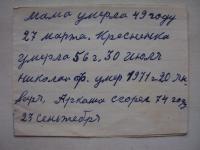 мама умерла 49 году
27 марта. Крёсненка
умерла 56 г. 30 Июля
Николай ф. умер 1971 г 20 ян
варя, Аркаша сгорел 74 год
23 сентебря